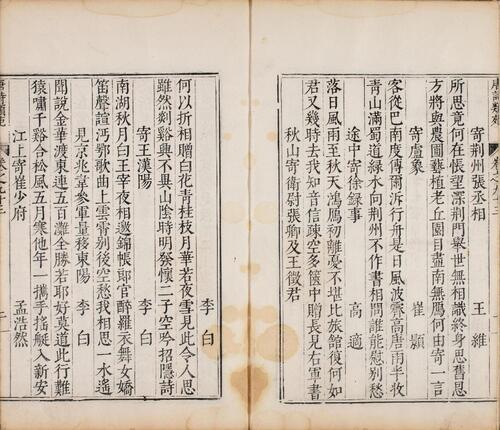 寄荊州張丞相　王維
所思竟何在悵望深荊門舉世無相識終身思舊恩
方將與農圃藝植老丘園目盡南無鴈何由寄一言
寄盧象　崔顥
客從巴南度傳爾泝行舟是日風波霽高唐雨半收
青山滿蜀道綠水向荊州不作書相問誰能慰別愁
途中寄徐録事　高適
落日風雨至秋天鴻鴈初離憂不堪比旅館復何如
君又幾時去我知音信疎空多篋中贈長見右軍書
秋山寄衛尉張卿及王徵君
李白
何以折相贈白花青桂枝月華若夜雪見此令人思
雖然剡谿興不異山陰時明發懷二子空吟招隱詩
寄王漢陽　李白
南湖秋月白王宰夜相邀錦帳郎官醉羅衣舞女嬌
笛聲諠沔鄂歌曲上雲霄別後空愁我相思一水遙
見京兆韋參軍量移東陽　李白
聞說金華渡東連五百灘全勝若耶好莫道此行難
猿嘯千谿合松風五月寒他年一攜手搖艇入新安
江上寄崔少府　孟浩然